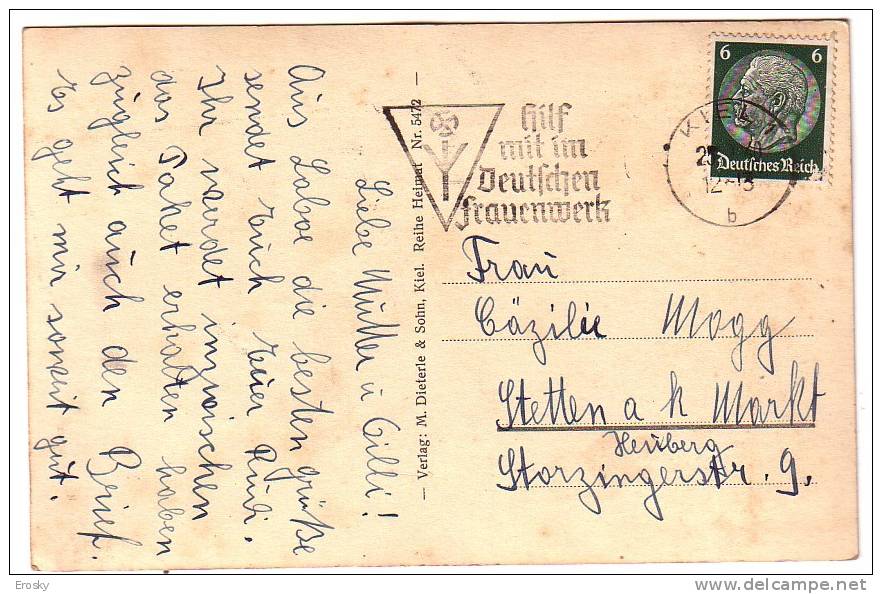 Liebe Mutter u Cilli!
Aus Laboe die besten Grüße
sendet Euch Euer Rudi.
Ihr werdet inzwischen
das Paket erhalten haben
zugleich auch den Brief.
Es geht mir soweit gut.
— Verlag: M. Dieterle & Sohn, Kiel. Reihe Heimat Nr. 5472 —
Hilf
mit im
Deutschen
Frauenwerk
KIEL
b
6 6
Deutsches Reich
Frau
Cäzilie Mogg
Stetten a k Markt
Heuberg
Storzingerstr. 9.
Erosky
delcampe.net